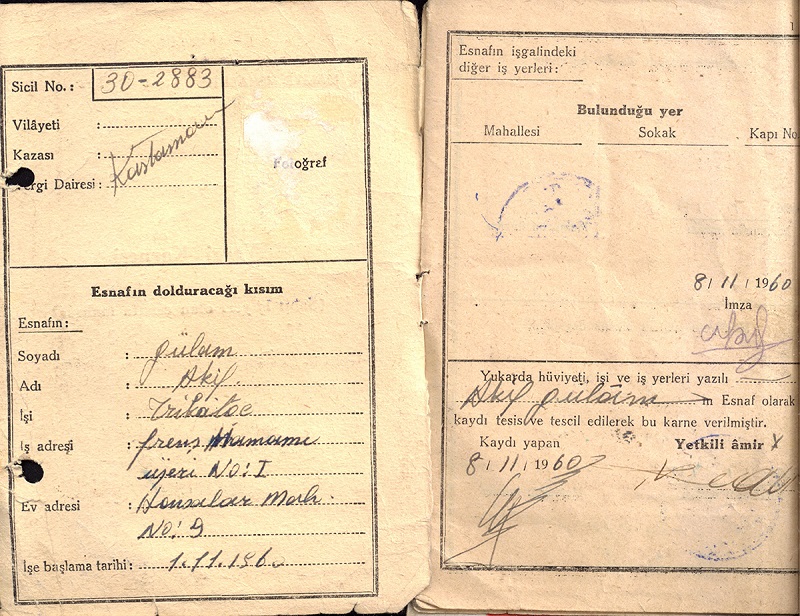 Sicil No.: 30-2883
Vilâyeti :
Kazası : Kastamonu
Vergi Dairesi :
Fotoğraf
Esnafın dolduracağı kısım
Esnafın :
Soyadı : gülam
Adı : Akif
İşi :
İş adresi :
üzeri No: 1
Ev adresi : Mah.
No: 9
İşe başlama tarihi : 1.11.196
Esnafın işgalindeki
diğer iş yerleri :
Bulunduğu yer
Mahallesi Sokak Kapı No
8/11/1960
İmza
Yukarda hüviyeti, işi ve iş yerleri yazılı
Akif gülâm ın Esnaf olarak
kaydı tesis ve tescil edilerek bu karne verilmiştir.
Kaydı yapan Yetkili âmir
8/11/1960